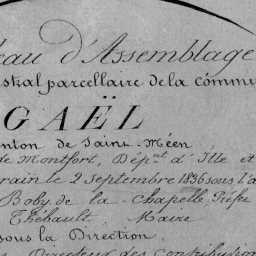 eau d'Assemblage
stral parcellaire de la commu
GAËL
nton de Saint-Méen
de Montfort, Dép.nt d'Ille et
rain le 2 septembre 1836 sous l'a
Boby de la Chapelle, Préfe
Thébault, Maire
sous la Direction
Directeur des Contribution